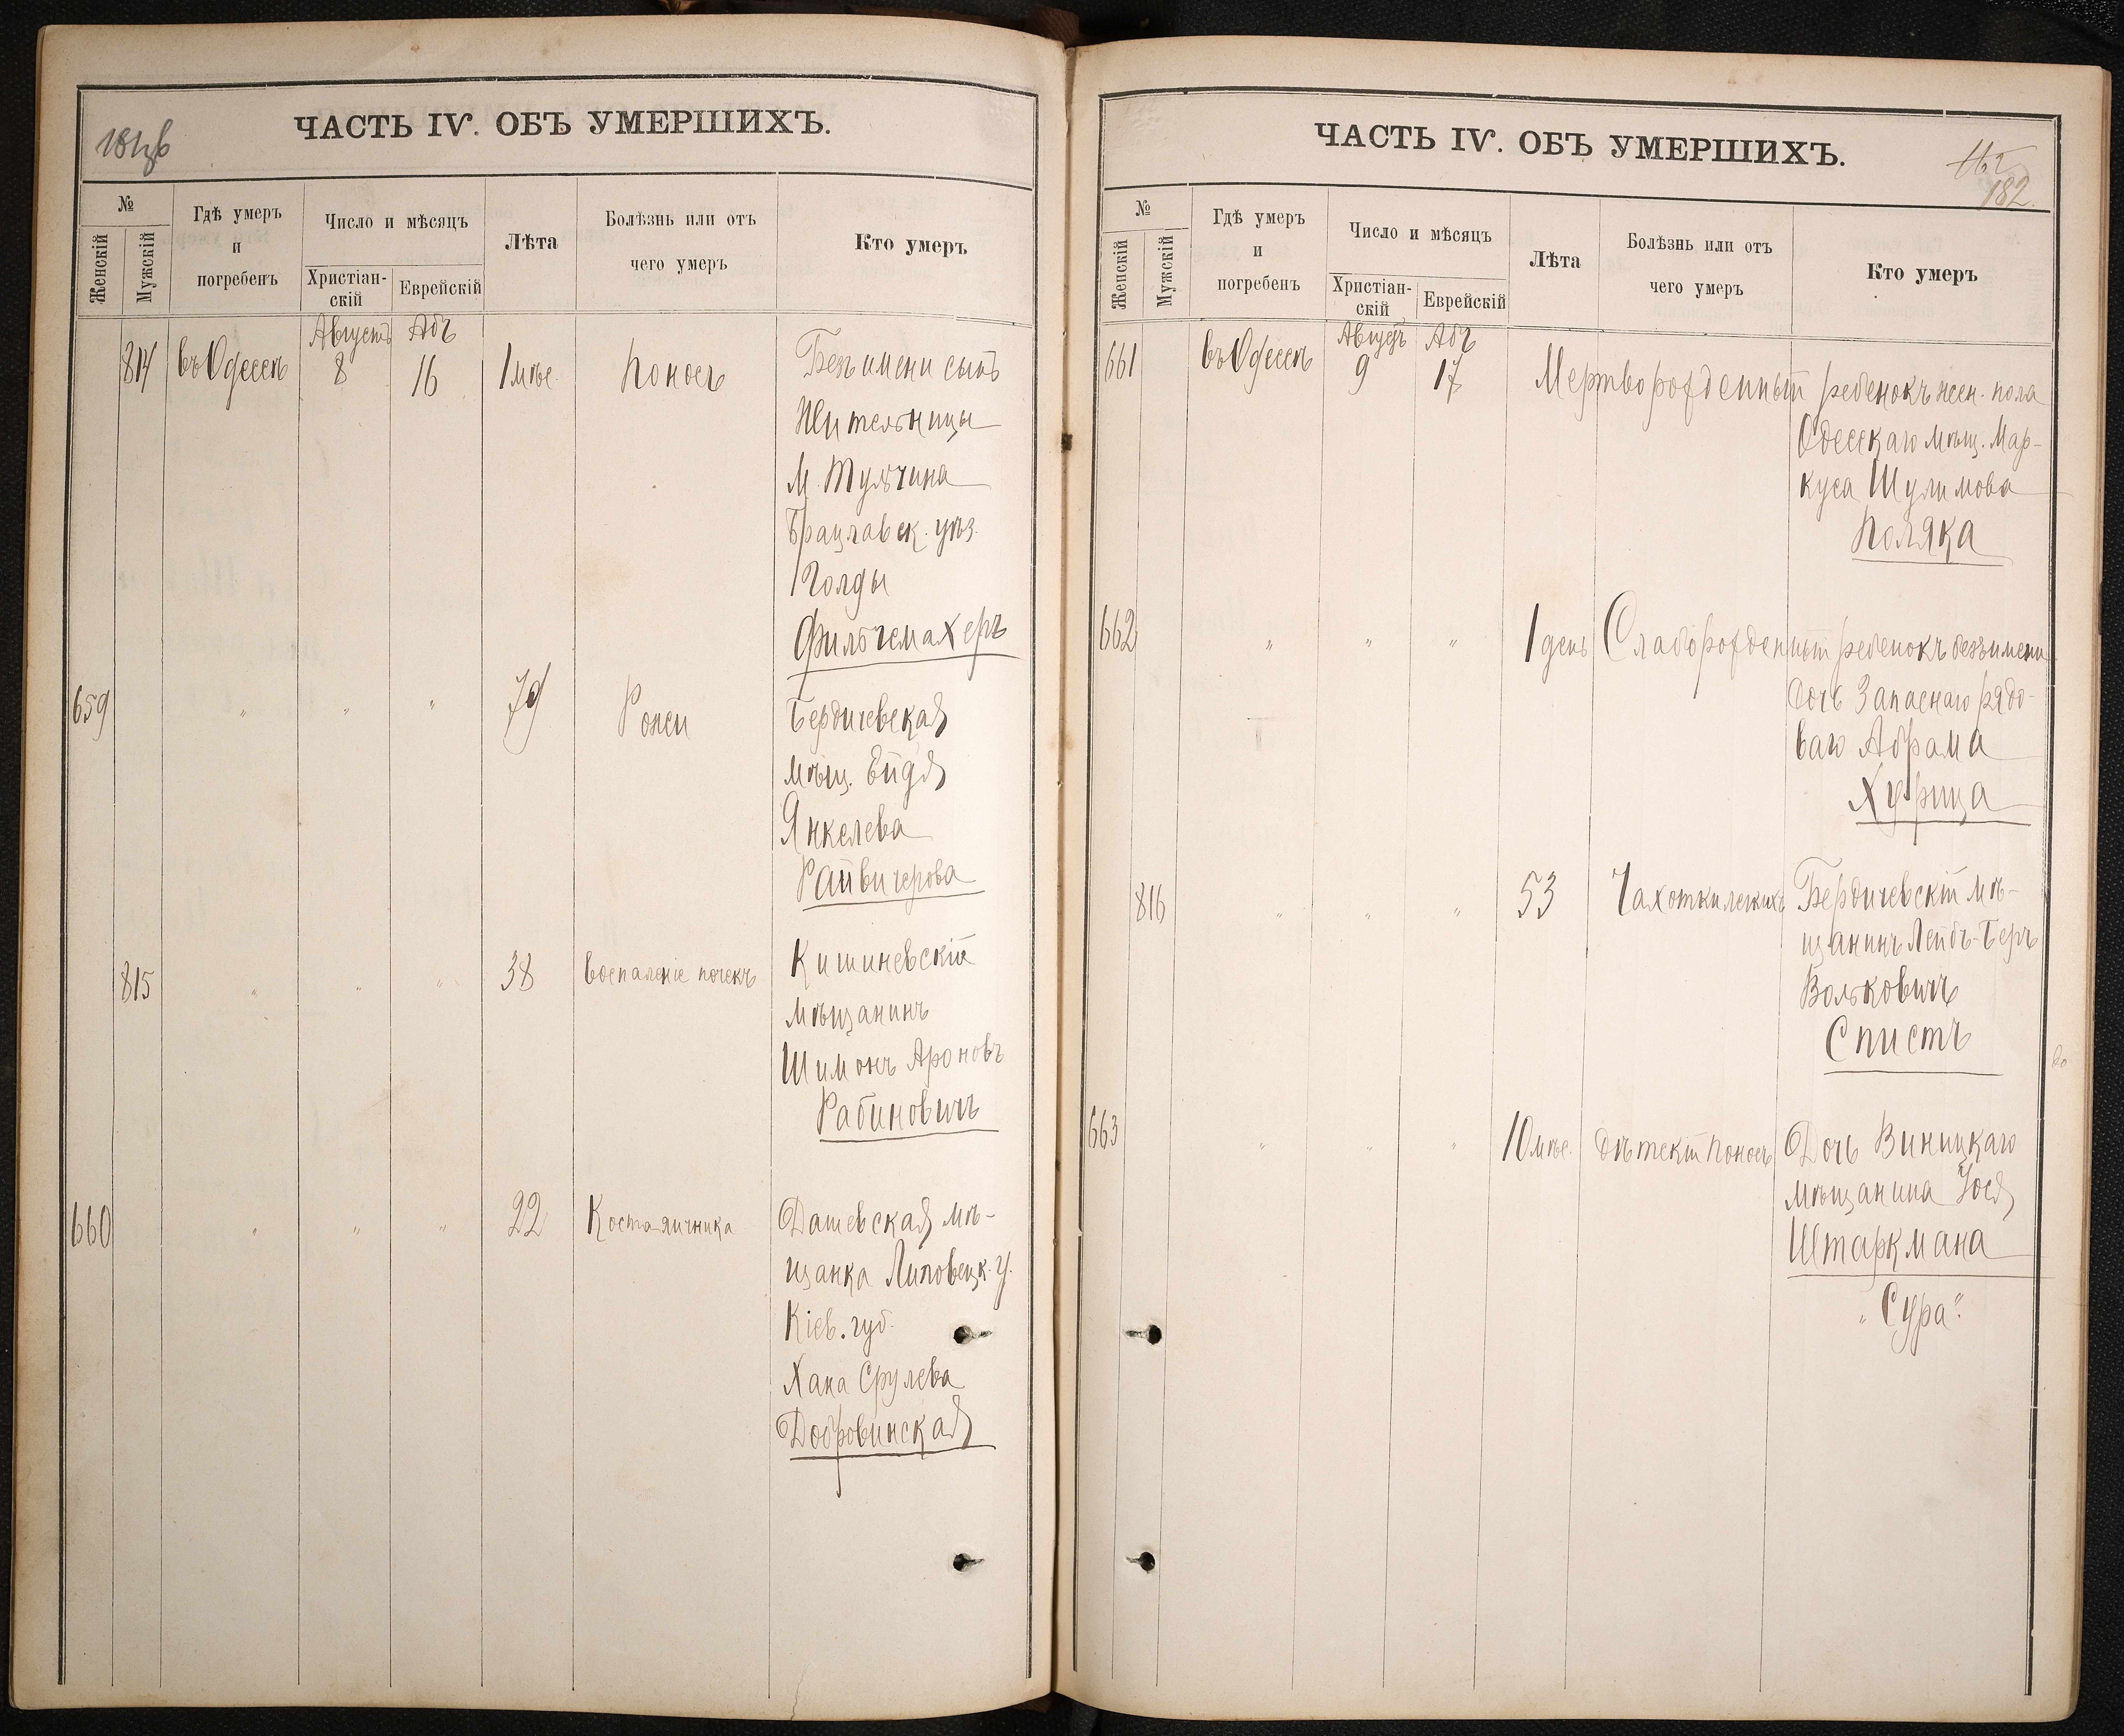 181об
ЧАСТЬ IV. ОБЪ УМЕРШИХЪ.
№
Женскій
Мужскій
Гдѣ умеръ
и
погребенъ
Число и мѣсяцъ
Христіан-
скій
Еврейскій
Лѣта
Болѣзнь или отъ
чего умеръ
Кто умеръ
Августъ Абъ
814 въ Одессѣ 8 16 1 мѣс. Поносъ Безъ имени сынъ
Жительницы
М. Тульчина
Брацлавск. уѣз.
Голды
Фильчемахеръ
659 " " " 79 Рожи Бердичевская
мѣщ. Ейдя
Янкелева
Райвичерова
815 " " " 38 Воспаленіе почекъ Кишиневскій
мѣщанинъ
Шимонъ Ароновъ
Рабиновичъ
660 " " " 22 Костаяичника Дашевская мѣ-
щанка Липовецк. у.
Кіев. губ.
Хана Срулева
Добровинская
ЧАСТЬ IV. ОБЪ УМЕРШИХЪ.
162
182.
№
Женскій
Мужскій
Гдѣ умеръ
и
погребенъ
Число и мѣсяцъ
Христіан-
скій
Еврейскій
Лѣта
Болѣзнь или отъ
чего умеръ
Кто умеръ
Августъ Абъ
661 въ Одессѣ 9 17 Мертворожденный ребенокъ жен. пола
Одесскаго мѣщ. Мар-
куса Шулимова
Поляка
662 " " " 1 день Слаборожденный ребенокъ безъ имени
дочь Запаснаго рядо-
ваго Абрама
Хурица
816 " " " 53 Чахотки легкихъ Бердичевскій мѣ-
щанинъ Лейбъ-Беръ
Вольковичъ
Спистъ
663 " " " 10 мѣс. дѣтскій поносъ Дочь Виницкаго
мѣщанина Іося
Штаркмана
"Сура".